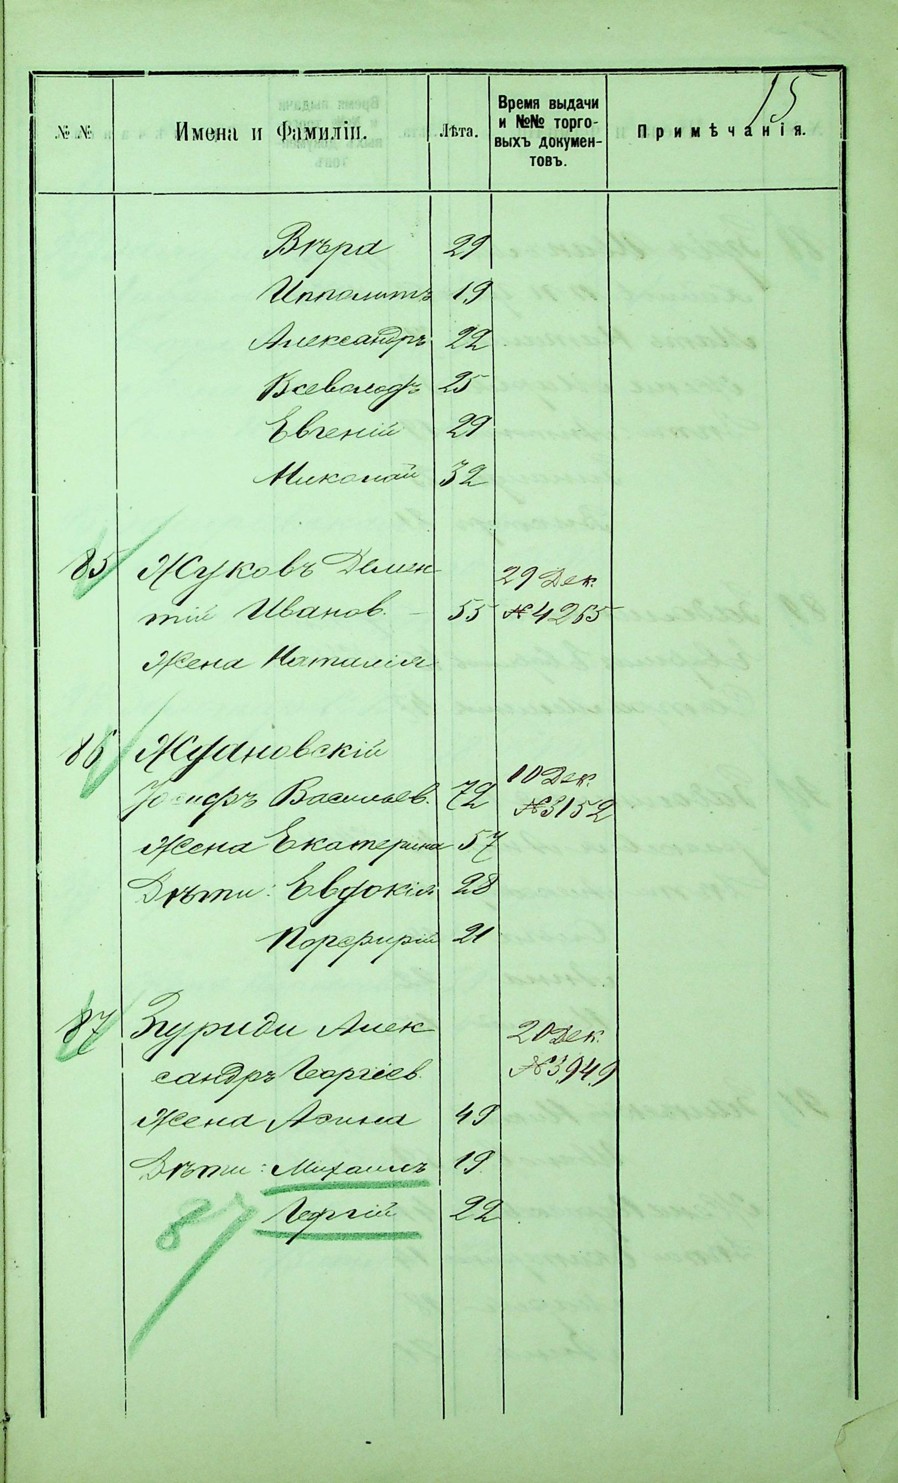 15
№ №
Имена и Фамиліи.
Лѣта.
Время выдачи
и №№ торго-
выхъ докумен-
товъ.
Примѣчанія.
Вѣра 29
Ипполитъ 19
Александръ 22
Всеволодъ 25
Евгеній 29
Николай 32
85 Жуковъ Демен- 29 Дек.
тій Иванов. - 55 № 4265
Жена Наталія
86
Іосифъ Васильев. 72 10 Дек.
№3152
Жена Екатерина 57
Дѣти: Евдокія 28
Порфирій 21
87 Згуриди Алек- 20 Дек.
сандръ Георгіев. №3949
Жена 49
Дѣти: Михаилъ 19
Георгій 22
87